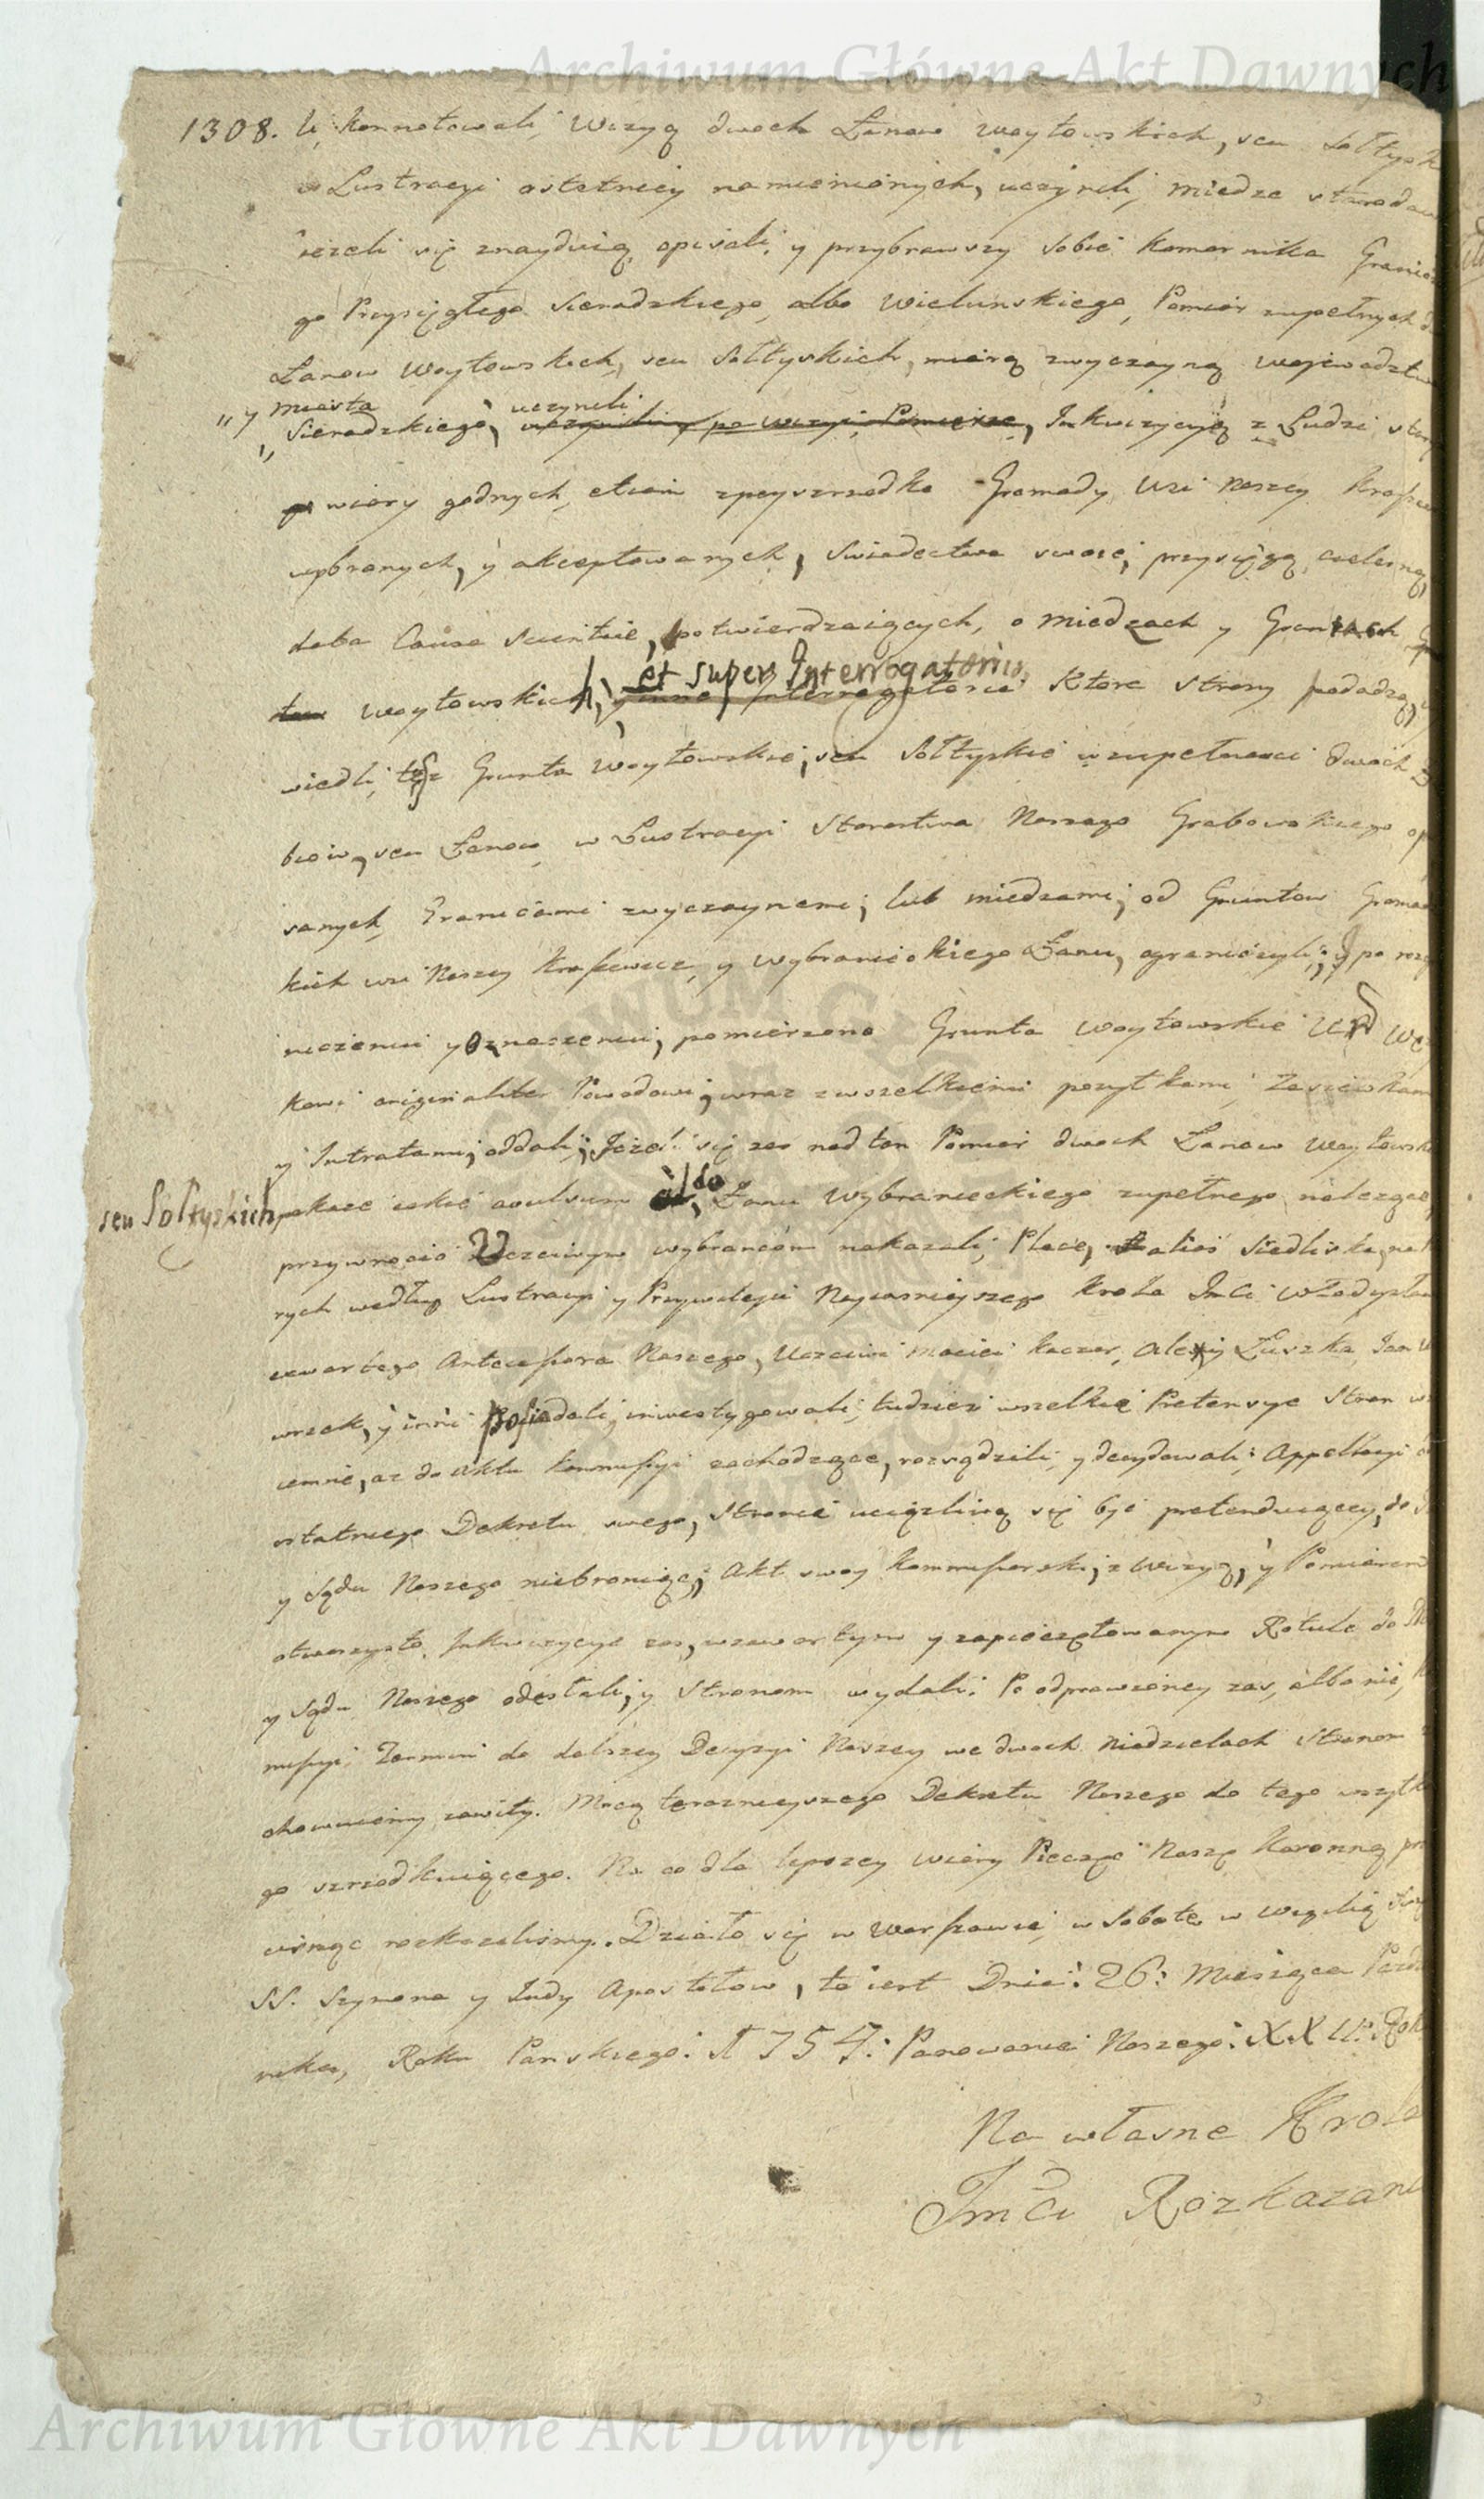 Archiwum Główne Akt Dawnych
1308. y konnotowali, Wizyą dwoch Łanow Woytowskich, seu Sołtysk
w Lustracyi ostatniey namienionych, uczynili, miedze starodaw
ieżeli się znayduią, opisali, y przybrawszy sobie Komornika Granicz
go Przysięgłego Sieradzkiego, albo Wielunskiego, Pomiar zupełnych
Łanow Woytowskich, seu Sołtyskich, miarą zwyczayną Wojewodztwa
" y miasta uczynili
Sieradzkiego, uczynili, y po Wizyi, Pomierze, Inkwizycyą z Ludzi star
wiary godnych, etiam zpoyszrzodka Gromady Wsi Naszey Krasze
wybranych, y akceptowanych, Swiadectwa swoie, przysięgą cielesną,
data Causa Scientiae, potwierdzaiących, o miedzach y Granicach
et super Interrogatoriis
Woytowskich, y inne Interrogatoria Ktore strony podadzą,
wiedli, też Grunta Woytowskie, seu Sołtyskie w zupełnosci dwoch
biow, seu Łanow w Lustracyi Starostwa Naszego Grabowskiego op
sanych, Granicami zwyczaynemi, lub miedzami, od Gruntow Gromadz
kich wsi Naszey Kraszewice, y Wybranieckiego Łanu, ograniczyli, y po rozg
niczeniu y Oznaczeniu, pomierzone Grunta Woytowskie
kowi originaliter Powodowi, wraz z wszelkiemi pozytkami, Zasiewkami
y Intratami, oddali, Jeżeli się zas nad ten Pomiar dwoch Łanow Woytowsk
seu Sołtyskich pokaże iakie avulsum do Łanu Wybranieckiego zupełnego należące,
przywrocic Uczciwym wybrańcom nakazali, Place, alias Siedliska, na kt
rych według Lustracyi y Przywileju Nayiasnieyszego Krola Jmci Władysława
czwartego Antecessora Naszego, Uczciwi Maciej Kaczor, Alexy Łuszka, Jan
wrzek, y inni Posiadali, inwestygowali, tudzież wszelkie Pretensye Stron w
iemnie, aż do Aktu Kommissyi zachodzące, rozsądzili, y decydowali; Appellacyi
ostatniego Dekretu swego, Stronie uciążliwą się być pretenduiącey, do
y Sądu Naszego niebroniąc; Akt swoy Kommissarski, z Wizyą, y Pomiarem
otworzysto, Inkwizycye zas, w zawartym y zapieczętowanym Rotule do
y Sądu Naszego odesłali, y Stronom wydali. Po odprawioney zas, albo nie,
missyi, Termin do dalszey Decyzyi Naszey we dwoch Niedzielach Stronom
chowuiemy zawity. Mocą teraznieyszego Dekretu Naszego do tego wszytk
go szrzodkuiącego. Na co dla lepszey wiary Pieczęć Naszę Koronną prz
cisnąc rozkazalismy. Działo się w Warszawie, w Sobotę w Wigilią Swię
SS. Szymona y Judy Apostołow, to iest Dnia: 26: Miesiąca Pazdz
nika, Roku Panskiego: 1754: Panowania Naszego: XXII: Roku
Na własne Krola
Jmći Rozkazanie
Archiwum Główne Akt Dawnych